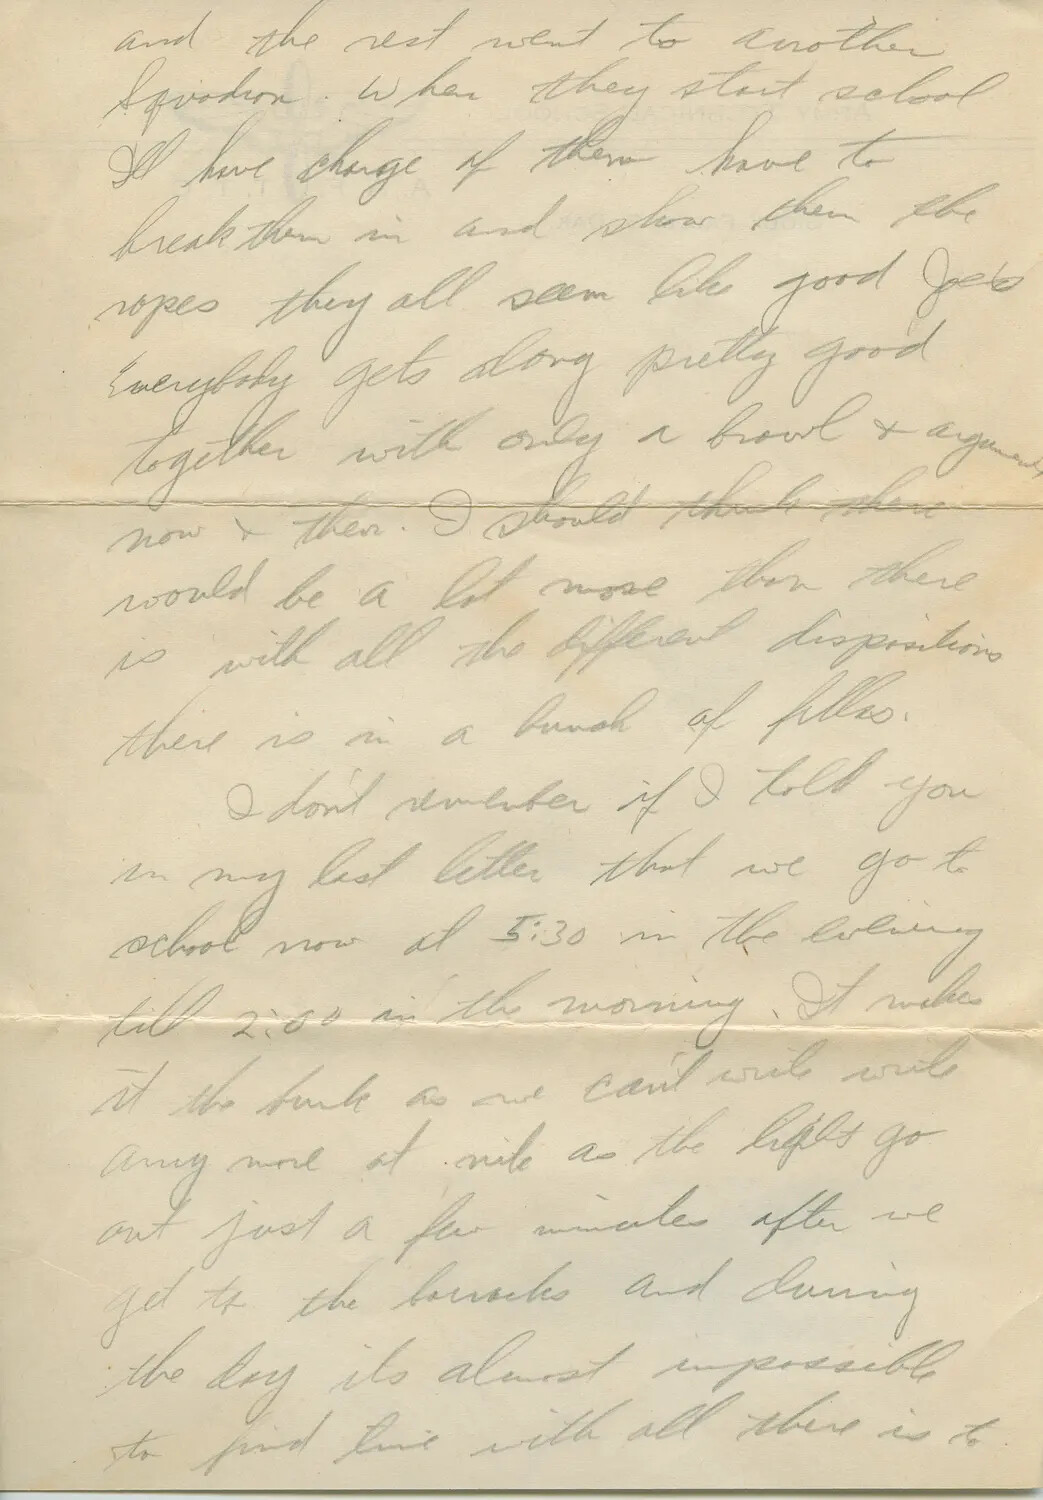 and the rest went to another
Squadron. When they start school
I'll have charge of them have to
break them in and show them the
ropes they all seem like good Joe's
Everybody gets along pretty good
together with only a brawl & arguments
now & then. I should think there
would be a lot more than there
is with all the different dispositions
there is in a bunch of fellas.
I don't remember if I told you
in my last letter that we go to
school now at 5:30 in the evening
till 2:00 in the morning. It makes
it the bunk as we can't write write
any more at nite as the lights go
out just a few minutes after we
get to the barracks and during
the day its almost impossible
to find time with all there is to